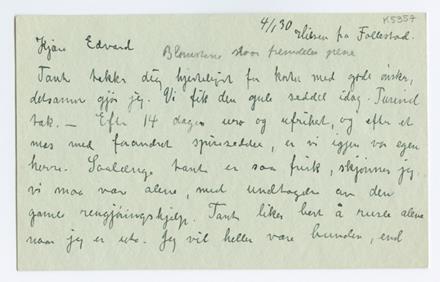 K5357
4/1 30 Hilsen fra Follestad.
Kjære Edvard
Blomstene staar fremdeles pene
Tante takker dig hjerteligst for kortet med gode ønsker,
detsamme gjør jeg. Vi fik den gule seddel idag. Tusind
tak. — Efter 14 dagers uro og ufrihet, og efter et
mas med forandret spisesedler, er vi igjen vor egen
herre. Saalænge tante er saa frisk, skjønner jeg,
vi maa være alene, med undtagelse av den
gamle rengjøringshjelp. Tante liker best å rusle alene
naar jeg er ute. Jeg vil heller være bunden, end